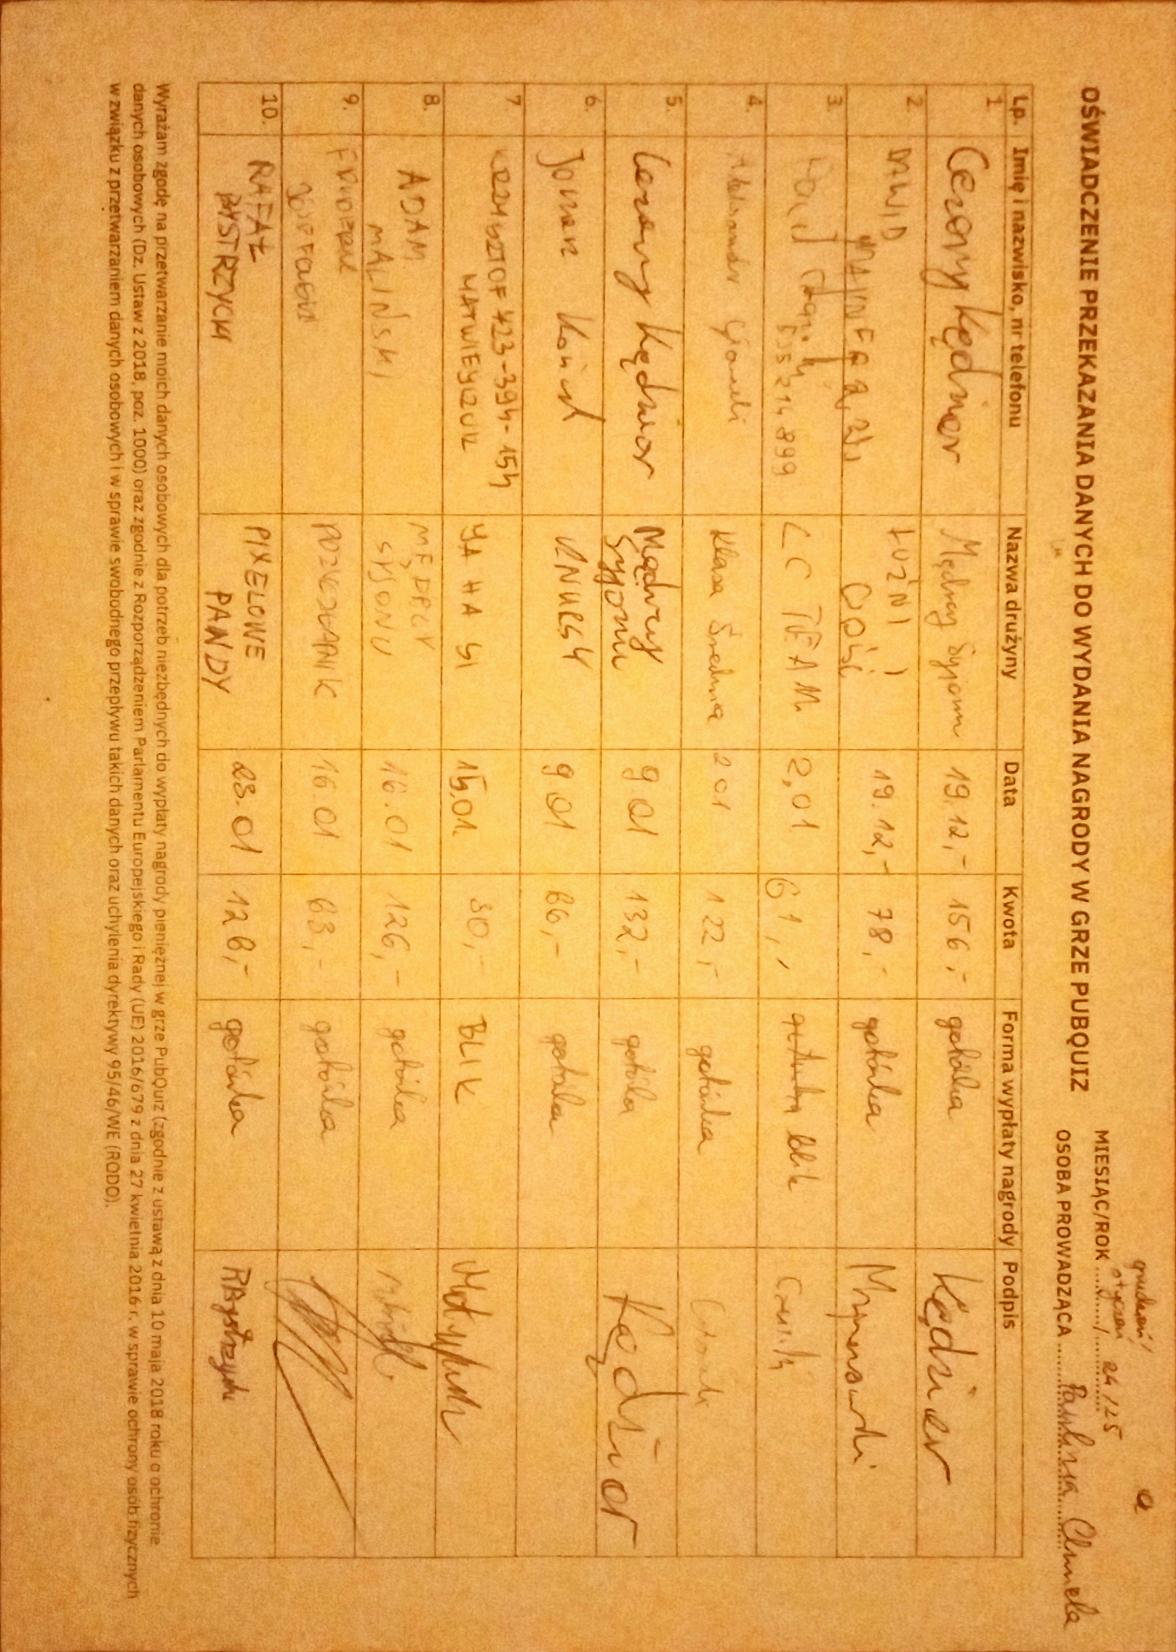 OŚWIADCZENIE PRZEKAZANIA DANYCH DO WYDANIA NAGRODY W GRZE PUBQUIZ
grudzień/
styczeń
MIESIĄC/ROK ......./.......... 24/25
OSOBA PROWADZĄCA ...... Paulina Chmiela
Lp. Imię i nazwisko, nr telefonu Nazwa drużyny Data Kwota Forma wypłaty nagrody Podpis
1. Cezary Kędzior Mędrcy Syjonu 19.12,- 156,- gotówka Kędzior
2. DAWID LUŹNI 19.12,- 78,- gotówka
3. CC TEAM 2,01 61,- gotówka blik
4. Aleksander Klasa Średnia 2 01 122,- gotówka
5. Cezary Kędzior Mędrcy Syjonu 9 01 132,- gotówka Kędzior
6. 9 01 66,- gotówka
7. KRZYSZTOF 423-394-154 YA HA SI 15.01. 30,- BLIK
MATWIEJCZUK
8. ADAM MĘDRCY 16.01 126,- gotówka
MALIŃSKI SYJONU
9. 16.01 63,- gotówka
10. RAFAŁ PIXELOWE 23.01 126,- gotówka RBystrzycki
BYSTRZYCKI PANDY
Wyrażam zgodę na przetwarzanie moich danych osobowych dla potrzeb niezbędnych do wypłaty nagrody pieniężnej w grze PubQuiz (zgodnie z ustawą z dnia 10 maja 2018 roku o ochronie
danych osobowych (Dz. Ustaw z 2018, poz. 1000) oraz zgodnie z Rozporządzeniem Parlamentu Europejskiego i Rady (UE) 2016/679 z dnia 27 kwietnia 2016 r. w sprawie ochrony osób fizycznych
w związku z przetwarzaniem danych osobowych i w sprawie swobodnego przepływu takich danych oraz uchylenia dyrektywy 95/46/WE (RODO).